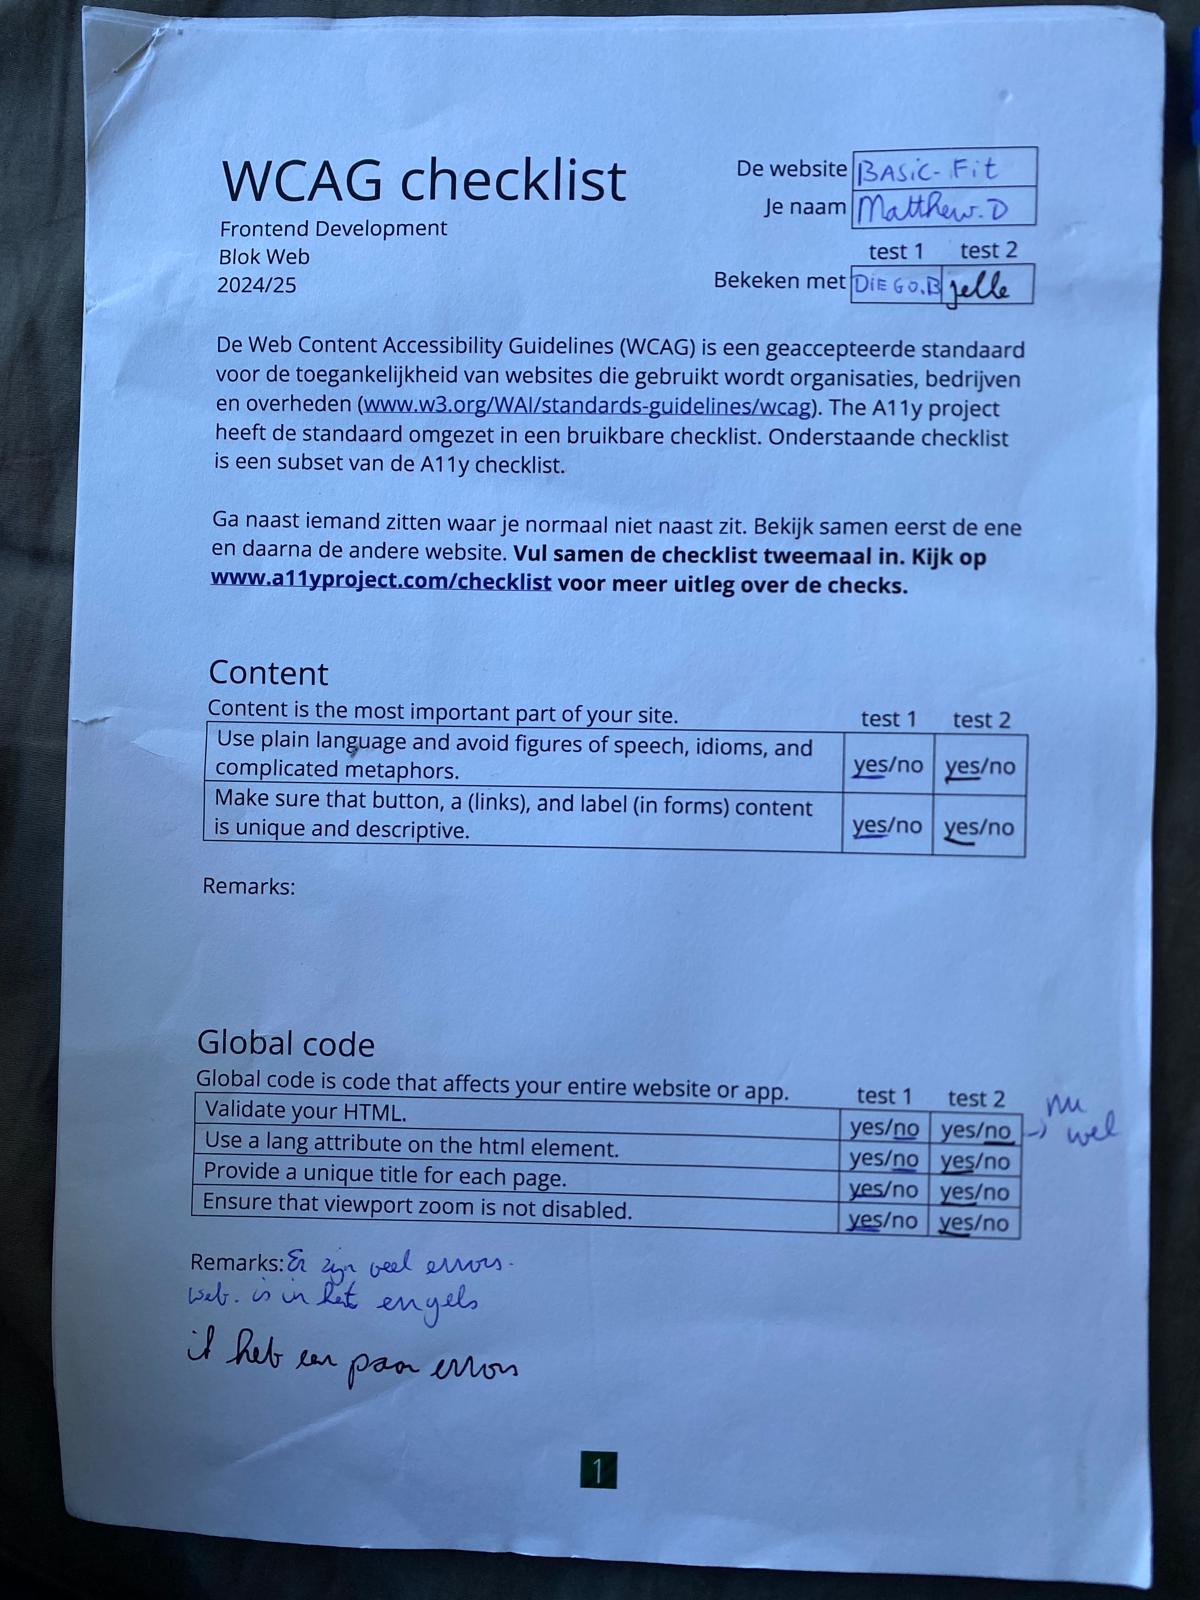 WCAG checklist
Frontend Development
Blok Web
2024/25
De website BASiC-Fit
Je naam Matthew.D
test 1 test 2
Bekeken met DiEGO.B jelle
De Web Content Accessibility Guidelines (WCAG) is een geaccepteerde standaard
voor de toegankelijkheid van websites die gebruikt wordt organisaties, bedrijven
en overheden (www.w3.org/WAI/standards-guidelines/wcag). The A11y project
heeft de standaard omgezet in een bruikbare checklist. Onderstaande checklist
is een subset van de A11y checklist.
Ga naast iemand zitten waar je normaal niet naast zit. Bekijk samen eerst de ene
en daarna de andere website. Vul samen de checklist tweemaal in. Kijk op
www.a11yproject.com/checklist voor meer uitleg over de checks.
Content
Content is the most important part of your site. test 1 test 2
Use plain language and avoid figures of speech, idioms, and
complicated metaphors. yes/no yes/no
Make sure that button, a (links), and label (in forms) content
is unique and descriptive. yes/no yes/no
Remarks:
Global code
Global code is code that affects your entire website or app. test 1 test 2
Validate your HTML. yes/no yes/no nu wel
Use a lang attribute on the html element. yes/no yes/no
Provide a unique title for each page. yes/no yes/no
Ensure that viewport zoom is not disabled. yes/no yes/no
Remarks: Er zijn veel errors.
web. is in het engels
ik heb een paar errors
1